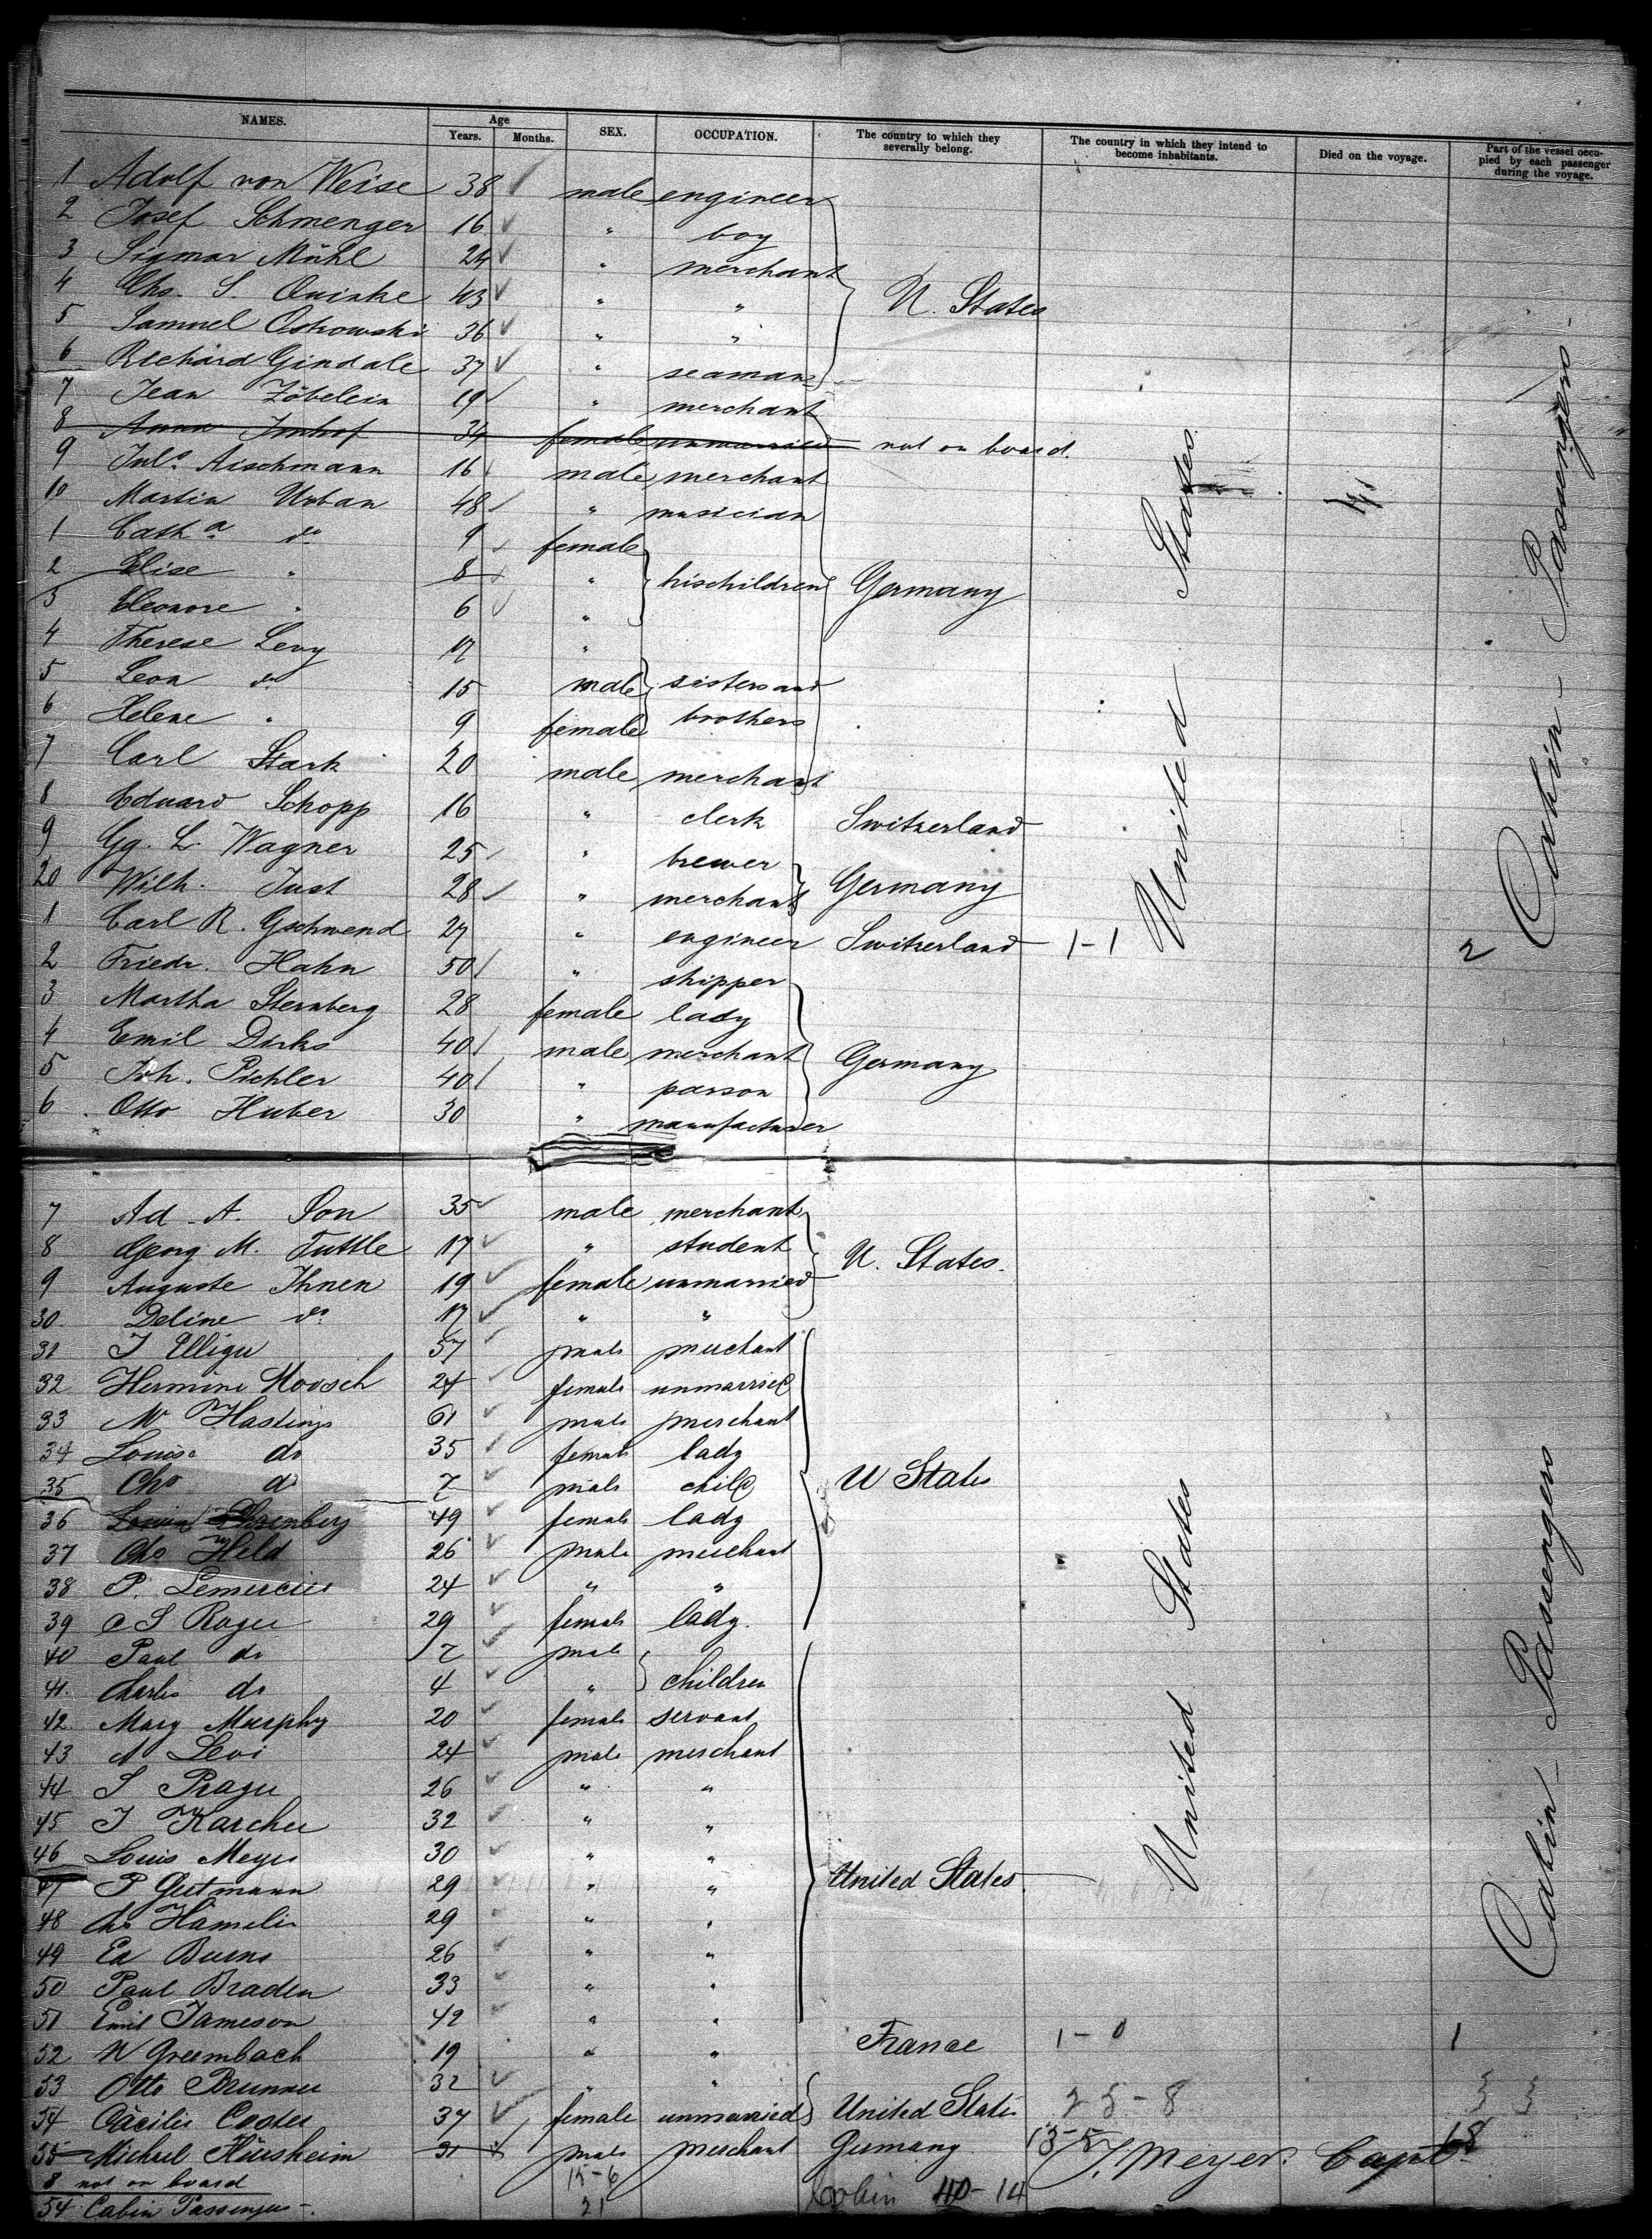 NAMES. Age Years. Months. SEX. OCCUPATION. The country to which they severally belong. The country in which they intend to become inhabitants. Died on the voyage. Part of the vessel occupied by each passenger during the voyage.
1 Adolf von Weise 38 male engineer
2 Josef Schmenger 16 " boy
3 Sigmar Mühl 24 " merchant
4 Chs. S. Quinke 43 " " U. States
5 Samuel Ostrowski 36 " "
6 Richard Gindale 37 " seaman
7 Jean Zöbelein 19 " merchant
8 Anna Imhof 34 female unmarried not on board.
9 Juls. Aischmann 16 male merchant
10 Martin Urban 48 " musician
1 Catha. do 9 female
2 Elise " 8 " his children Germany
3 Eleonore " 6 "
4 Therese Levy 17 "
5 Leon do 15 male sisters and
6 Helene " 9 female brothers
7 Carl Stark 20 male merchant
8 Eduard Schopp 16 " clerk Switzerland
9 Gg. L. Wagner 25 " brewer
20 Wilh. Just 28 " merchant Germany
1 Carl R. Gschwend 27 " engineer Switzerland 1-1 2
2 Friedr. Hahn 50 " shipper
3 Martha Sternberg 28 female lady
4 Emil Dirks 40 male merchant Germany
5 Joh. Pichler 40 " parson
6 Otto Huber 30 " manufacturer
United States
Cabin-Passengers
7 Ad. A. Son 35 male merchant
8 Georg M. Tuttle 17 " student U. States.
9 Auguste Ihnen 19 female unmarried
30. Deline do 17 " "
31 J 57 male merchant
32 Hermine Moosch 24 female unmarried
33 M Hastings 61 male merchant
34 Louise do 35 female lady
35 Chs do 7 male child U States
36 49 female lady
37 Chs Held 26 male merchant
38 P. Lemercier 24 " "
39 C S Roger 29 female lady.
40 Paul do 7 male
41. Charles do 4 " children
42. Mary Murphy 20 female servant
43 A Levi 24 male merchant
44 S Prager 26 " "
45 J Karcher 32 " "
46 Louis Meyer 30 " "
47 P Gutmann 29 " " United States
48 Chs Hamelin 29 " "
49 Ed Burns 26 " "
50 Paul Braden 33 " "
51 Emil Jameson 42 " "
52 N Greembach 19 " " France 1-0 1
53 Otto Brunner 32 " "
54 Cäcilie Coster 37 female unmarried United States 25-8
55 Michael Hirsheim 21 male merchant Germany 13-5 J. Meyer. Capt. 18
8 not on board 15-6
54 Cabin Passengers. 21 Cabin 40-14
United States
Cabin-Passengers